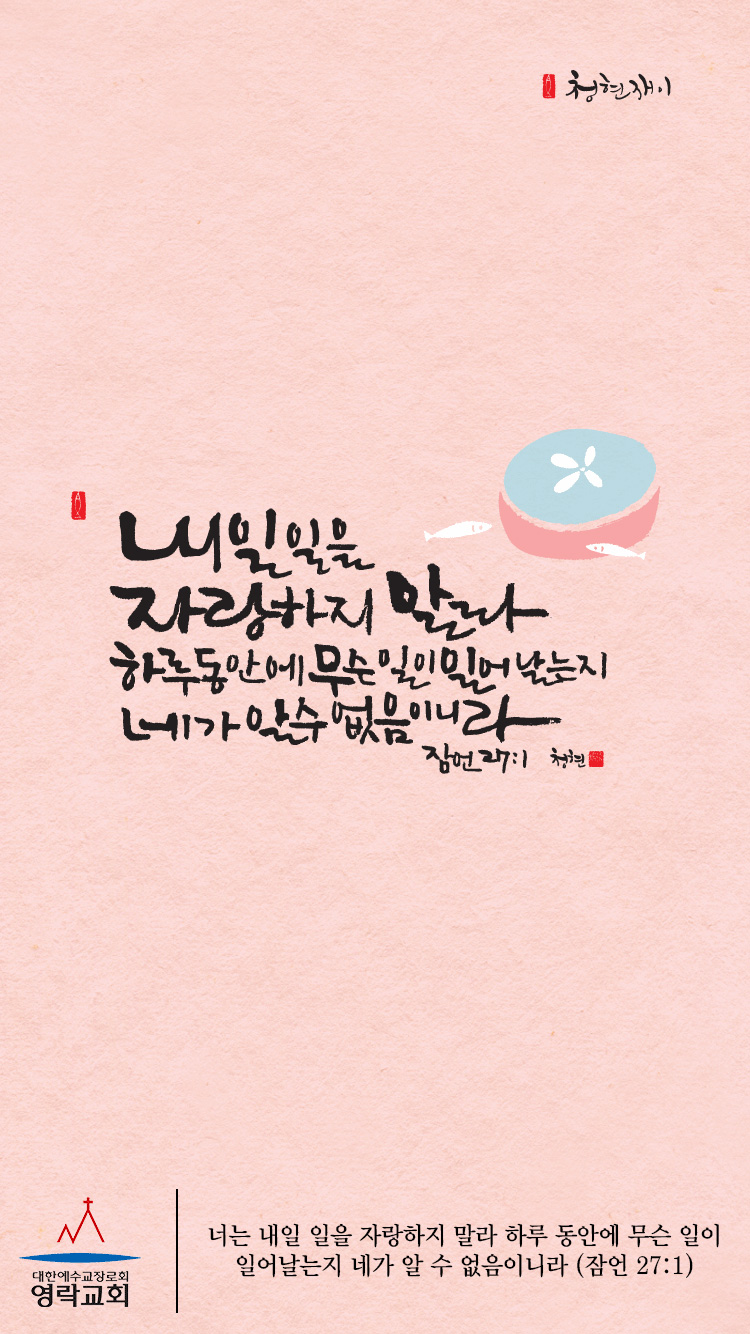 청현재이
내일 일을
자랑하지 말라
하루 동안에 무슨 일이 일어날는지
네가 알 수 없음이니라
잠언 27:1 청현
너는 내일 일을 자랑하지 말라 하루 동안에 무슨 일이
일어날는지 네가 알 수 없음이니라 (잠언 27:1)
대한예수교장로회
영락교회